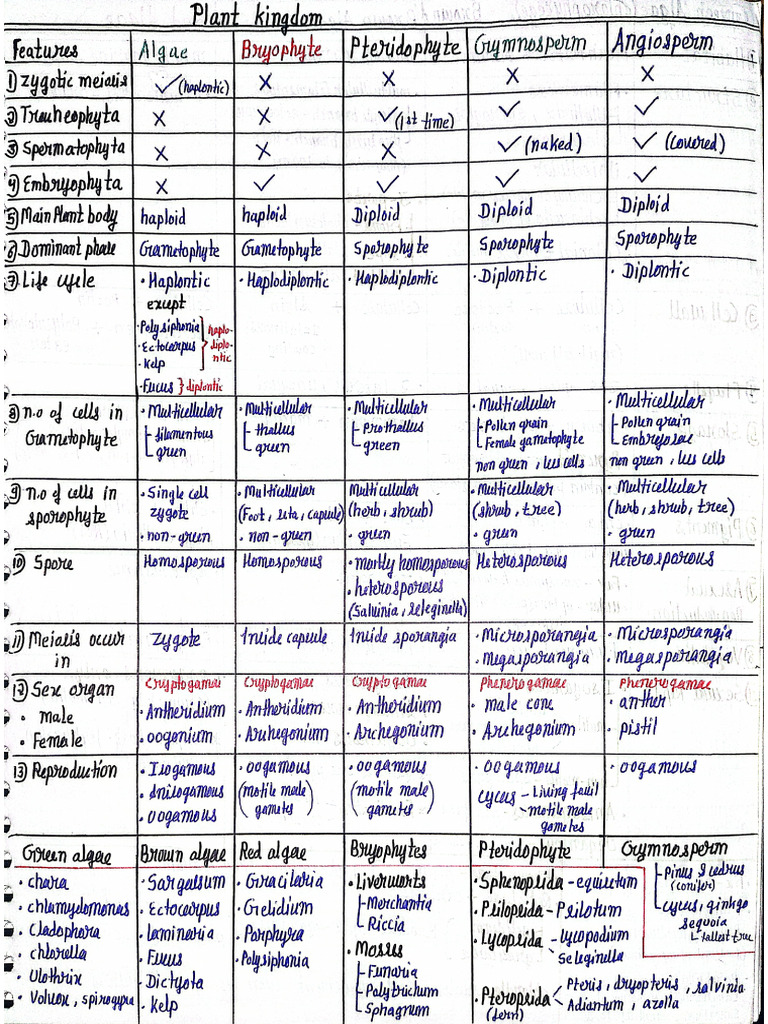 Plant kingdom
Features Algae Bryophyte Pteridophyte Gymnosperm Angiosperm
① Zygotic meiosis ✓ (haplontic) × × × ×
② Tracheophyta × × ✓ (1st time) ✓ ✓
③ Spermatophyta × × × ✓ (naked) ✓ (covered)
④ Embryophyta × ✓ ✓ ✓ ✓
⑤ Main Plant body haploid haploid Diploid Diploid Diploid
⑥ Dominant phase Gametophyte Gametophyte Sporophyte Sporophyte Sporophyte
⑦ Life cycle • Haplontic • Haplodiplontic • Haplodiplontic • Diplontic • Diplontic
except
• Polysiphonia
• Ectocarpus
• Kelp
} haplo-
diplo-
ntic
• Fucus } diplontic
⑧ n.o of cells in • Multicellular • Multicellular • Multicellular • Multicellular • Multicellular
Gametophyte filamentous thallus Prothallus Pollen grain Pollen grain
green green green Female gametophyte Embryosac
non green, less cells non green, less cells
⑨ n.o of cells in • Single cell • Multicellular • Multicellular • Multicellular • Multicellular
sporophyte zygote (Foot, seta, capsule) (herb, shrub) (shrub, tree) (herb, shrub, tree)
• non-green • non-green • green • green • green
⑩ Spore Homosporous Homosporous • mostly homosporous Heterosporous Heterosporous
• heterosporous
(Salvinia, seleginella)
⑪ Meiosis occur Zygote Inside capsule Inside sporangia • Microsporangia • Microsporangia
in • Megasporangia • Megasporangia
⑫ Sex organ Cryptogamae Cryptogamae Cryptogamae Phenerogamae Phenerogamae
• male • Antheridium • Antheridium • Antheridium • male cone • anther
• Female • oogonium • Archegonium • Archegonium • Archegonium • pistil
⑬ Reproduction • Isogamous • oogamous • oogamous • oogamous • oogamous
• Anisogamous (motile male gametes) (motile male gametes) cycus - Living fossil
• oogamous - motile male
gametes
Green algae Brown algae Red algae Bryophytes Pteridophyte Gymnosperm
• chara • Sargassum • Gracilaria • Liverworts • Sphenopsida - equisetum Pinus & cedrus
(conifer)
• chlamydomonas • Ectocarpus • Gelidium Merchantia • Psilopsida - Psilotum cycus, ginkgo
• Cladophora • laminaria • Porphyra Riccia • Lycopsida - Lycopodium sequoia
• chlorella • Fucus • Polysiphonia • Mosses Seleginella tallest tree
• Ulothrix • Dictyota Funaria
• Volvox, spirogyra • kelp Polytrichum • Pteropsida Pteris, dryopteris, salvinia
Sphagnum (fern) Adiantum, azolla